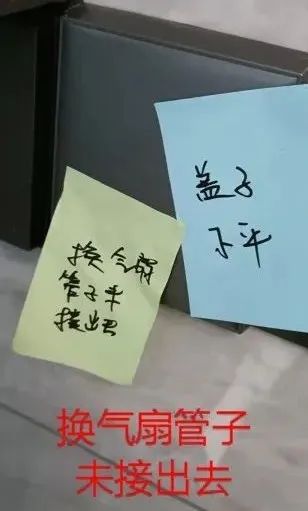 换气扇
管子未
接出去
盖子
不平
换气扇管子
未接出去